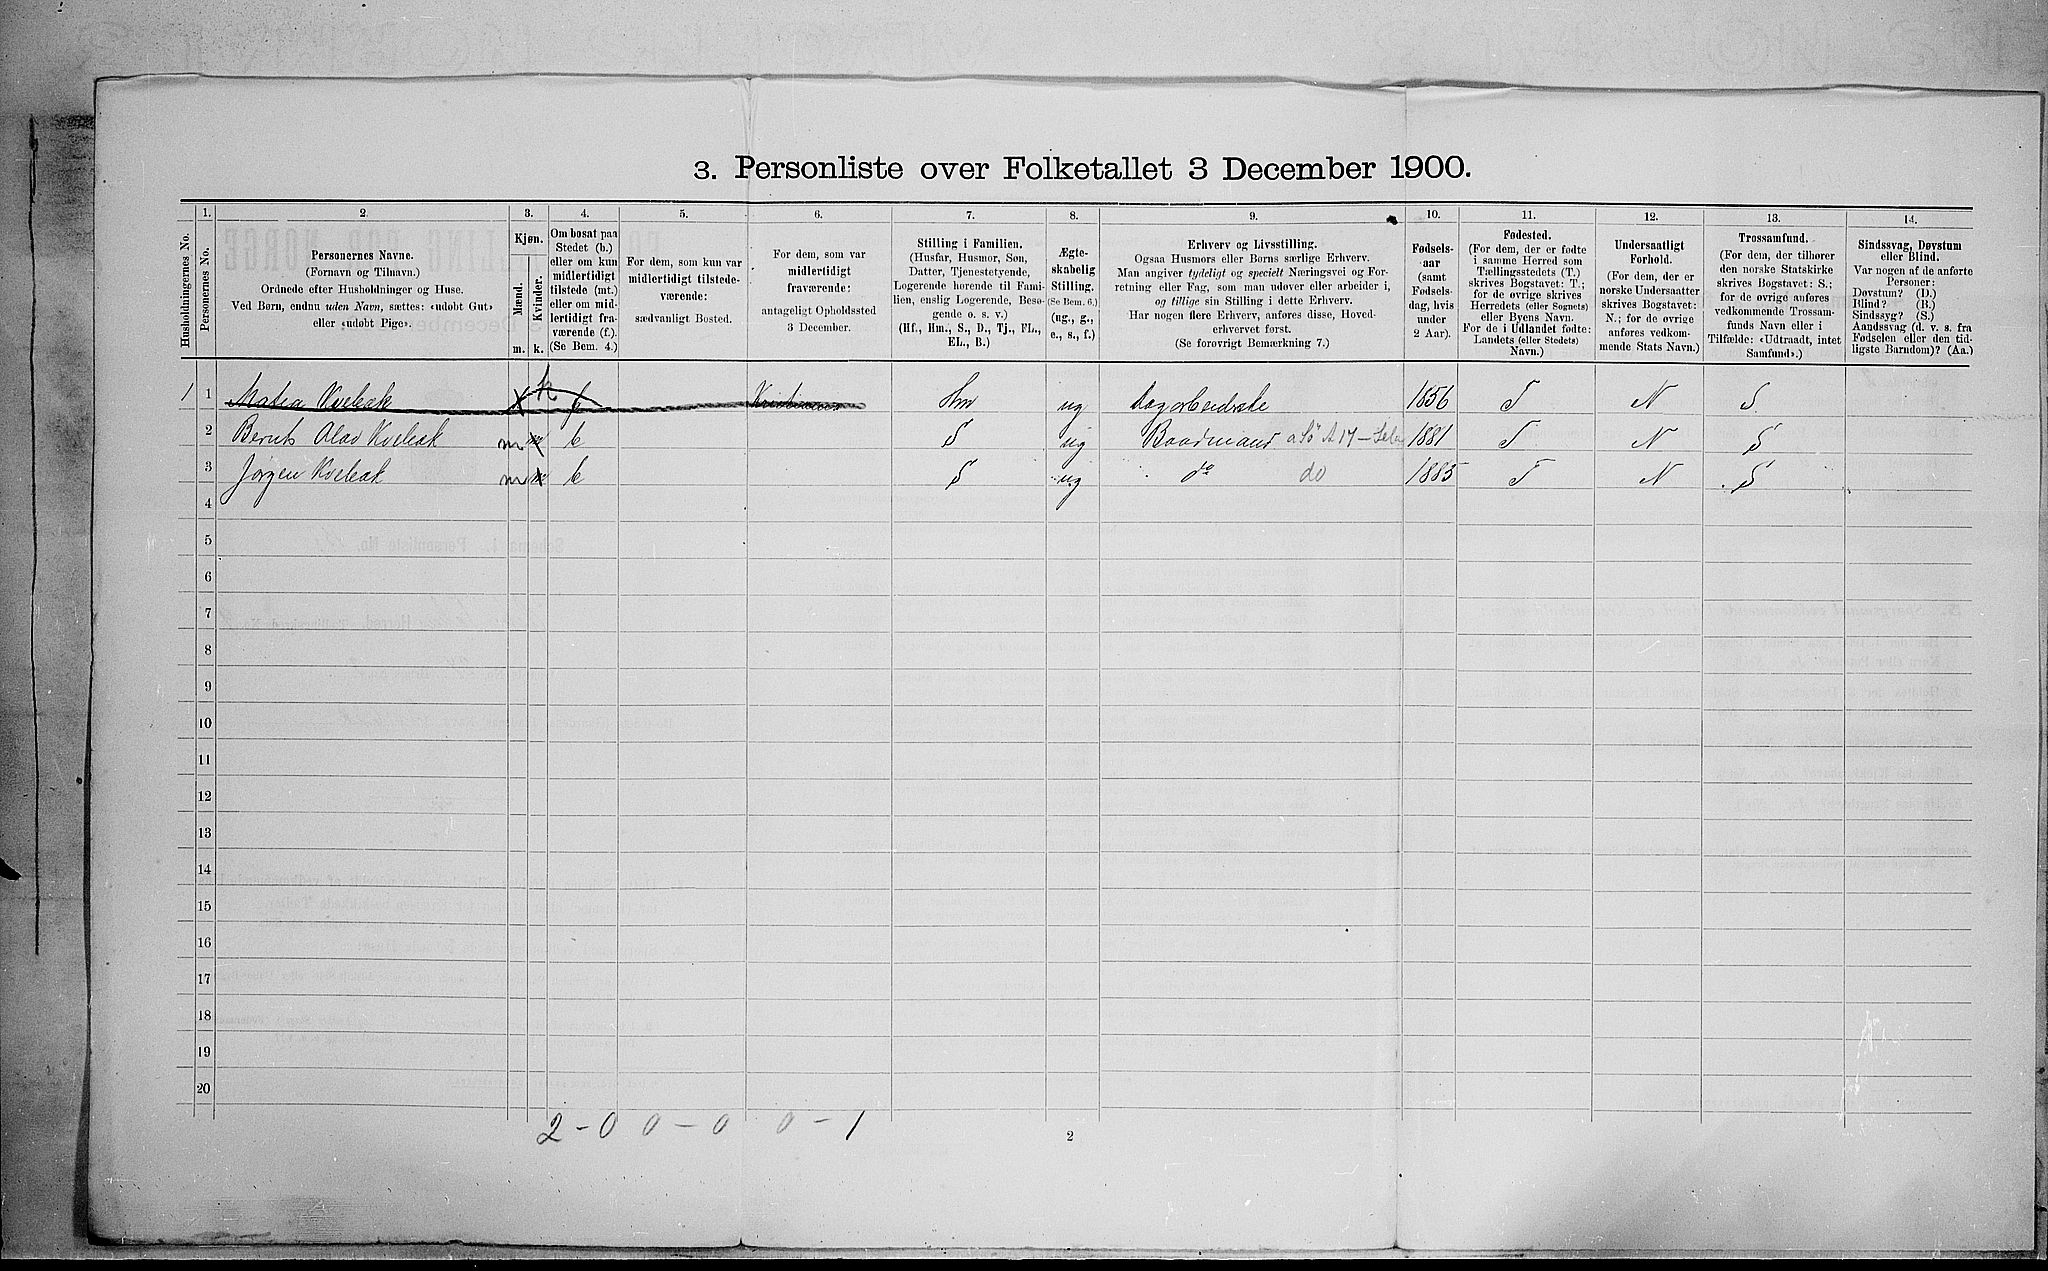 3. Personliste over Folketallet 3 December 1900.
Husholdningernes No.
1.
Personernes No.
2.
Personernes Navne.
(Fornavn og Tilnavn.)
Ordnede efter Husholdninger og Huse.
Ved Børn, endnu uden Navn, sættes: «udøbt Gut»
eller «udøbt Pige».
3.
Kjøn.
Mænd.
Kvinder.
m. k.
4.
Om bosat paa
Stedet (b.)
eller om kun
midlertidigt
tilstede (mt.)
eller om mid-
lertidigt fra-
værende (f.)
(Se Bem. 4.)
5.
For dem, som kun var
midlertidigt tilstede-
værende:
sædvanligt Bosted.
6.
For dem, som var
midlertidigt
fraværende:
antageligt Opholdssted
3 December.
7.
Stilling i Familien.
(Husfar, Husmor, Søn,
Datter, Tjenestetyende,
Logerende hørende til Fami-
lien, enslig Logerende, Besø-
gende o. s. v.)
(Hf., Hm., S., D., Tj., FL.,
EL., B.)
8.
Ægte-
skabelig
Stilling.
(Se Bem. 6.)
(ug., g.,
e., s., f.)
9.
Erhverv og Livsstilling.
Ogsaa Husmors eller Børns særlige Erhverv.
Man angiver tydeligt og specielt Næringsvei og For-
retning eller Fag, som man udøver eller arbeider i,
og tillige sin Stilling i dette Erhverv.
Har nogen flere Erhverv, anføres disse, Hoved-
erhvervet først.
(Se forøvrigt Bemærkning 7.)
10.
Fødsels-
aar
(samt
Fødsels-
dag, hvis
under
2 Aar).
11.
Fødested.
(For dem, der er fødte
i samme Herred som
Tællingsstedets (T.)
skrives Bogstavet: T.;
for de øvrige skrives
Herredets (eller Sognets)
eller Byens Navn.
For de i Udlandet fødte:
Landets (eller Stedets)
Navn.)
12.
Undersaatligt
Forhold.
(For dem, der er
norske Undersaatter
skrives Bogstavet:
N.; for de øvrige
anføres vedkom-
mende Stats Navn.)
13.
Trossamfund.
(For dem, der tilhører
den norske Statskirke
skrives Bogstavet: S.;
for de øvrige anføres
vedkommende Trossam-
funds Navn eller i
Tilfælde: «Udtraadt, intet
Samfund».)
14.
Sindssvag, Døvstum
eller Blind.
Var nogen af de anførte
Personer:
Døvstum? (D.)
Blind? (B.)
Sindssyg? (S.)
Aandssvag (d. v. s. fra
Fødselen eller den tid-
ligste Barndom)? (Aa.)
1 1 Kvebæk k Hm ug 1856 T N S
2 Olav Kvebæk m b S ug Baadmand 1881 T N S
3 Jørgen Kvebæk m b S ug do do 1885 T N S
4
5
6
7
8
9
10
11
12
13
14
15
16
17
18
19
20
2 - 0 0 - 0 0 - 1
2